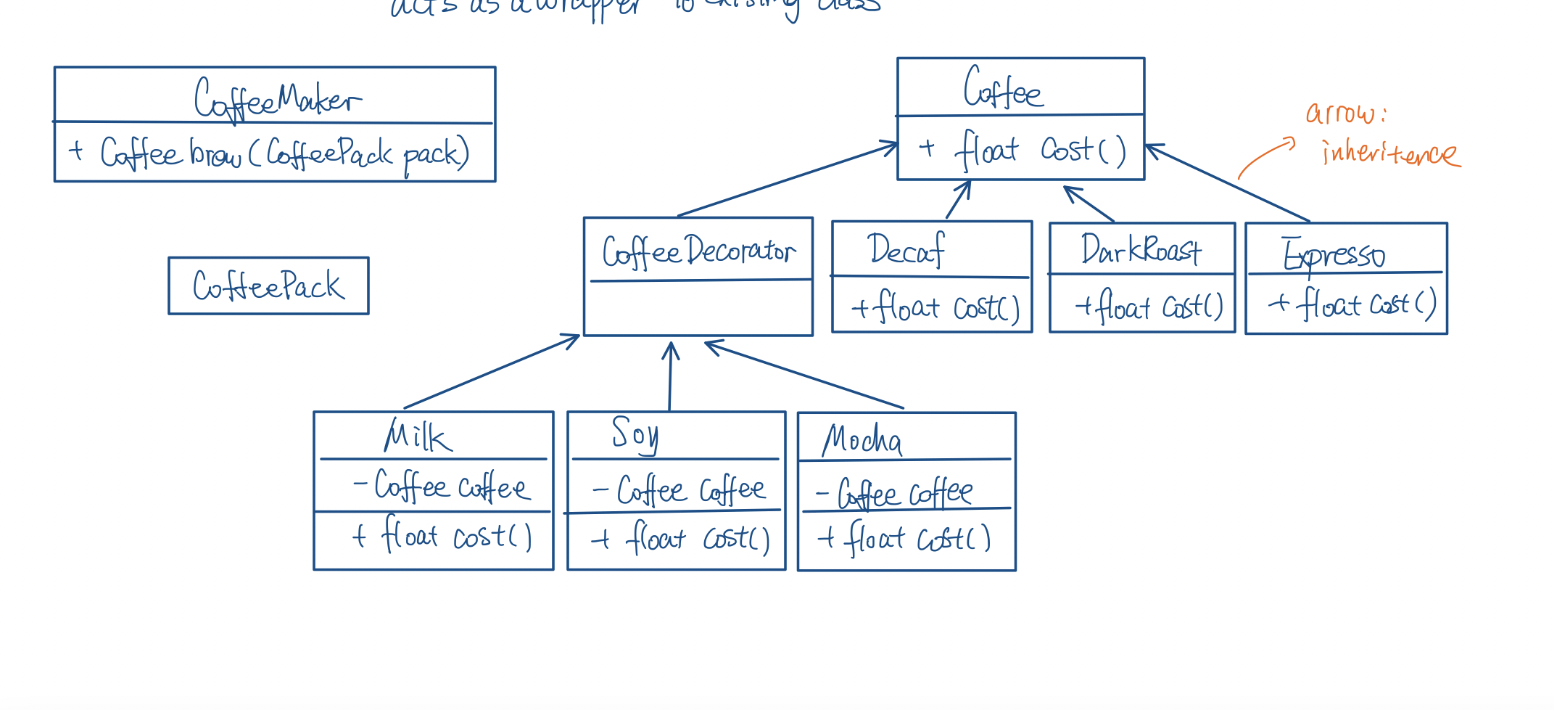 acts as a wrapper to existing class
CoffeeMaker
+ Coffee brew (CoffeePack pack)
CoffeePack
Coffee
+ float cost()
arrow:
inheritence
CoffeeDecorator
Decaf
+ float cost()
DarkRoast
+ float cost()
Expresso
+ float cost()
Milk
- Coffee coffee
+ float cost()
Soy
- Coffee coffee
+ float cost()
Mocha
- Coffee coffee
+ float cost()